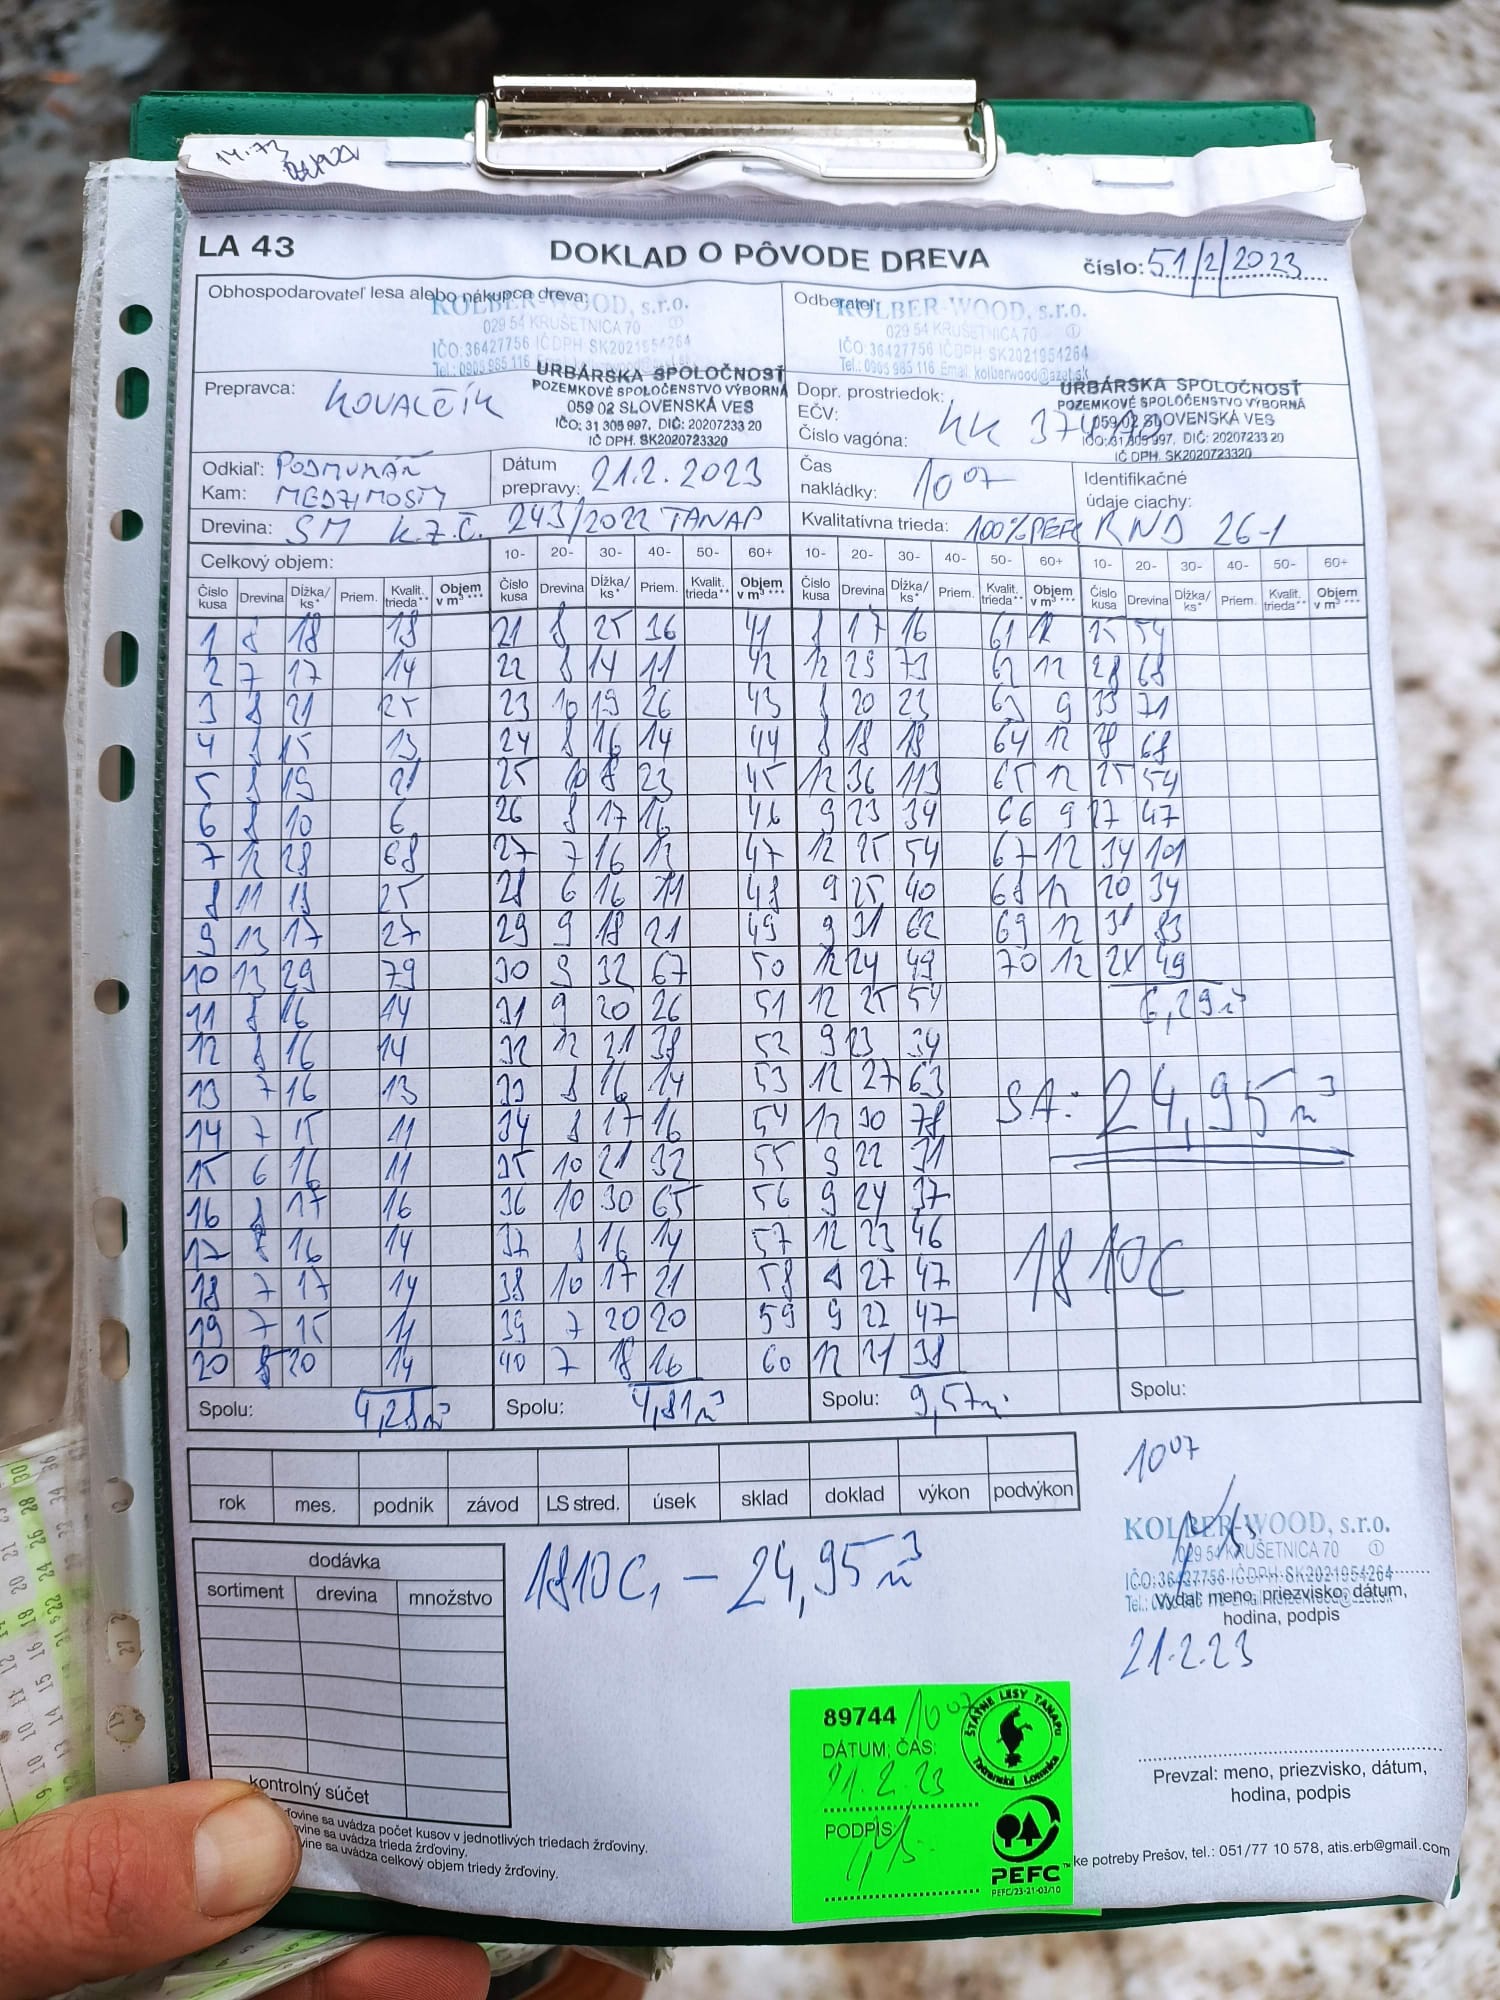 14.73
LA 43
DOKLAD O PÔVODE DREVA
číslo: 51/2/2023
Obhospodarovateľ lesa alebo nákupca dreva:
KOLBER-WOOD, s.r.o.
029 54 KRUŠETNICA 70 ①
IČO:36427756 IČDPH SK2021954264
Tel.: 0905 985 116
Odberateľ:
KOLBER-WOOD, s.r.o.
029 54 KRUŠETNICA 70 ①
IČO:36427756 IČDPH SK2021954264
Tel.: 0905 985 116 Email: kolberwood@azet.sk
Prepravca: KOVALČÍK
URBÁRSKA SPOLOČNOSŤ
POZEMKOVÉ SPOLOČENSTVO VÝBORNÁ
059 02 SLOVENSKÁ VES
IČO: 31 305 997, DIČ: 20207233 20
IČ DPH. SK2020723320
Dopr. prostriedok:
EČV: KK 374
Číslo vagóna:
URBÁRSKA SPOLOČNOSŤ
POZEMKOVÉ SPOLOČENSTVO VÝBORNÁ
059 02 SLOVENSKÁ VES
IČO: 31 305 997, DIČ: 20207233 20
IČ DPH. SK2020723320
Odkiaľ: PODMURÁŇ
Kam: MEDZIMOSTY
Dátum
prepravy: 21.2.2023
Čas
nakládky: 10 07
Identifikačné
údaje ciachy:
Drevina: SM K.Z.Č. 243/2022 TANAP
Kvalitatívna trieda: 100% PEFC RND 26-1
Celkový objem:
10- 20- 30- 40- 50- 60+ 10- 20- 30- 40- 50- 60+ 10- 20- 30- 40- 50- 60+
Číslo kusa Drevina Dĺžka/ ks* Priem. Kvalit. trieda** Objem v m³ *** Číslo kusa Drevina Dĺžka/ ks* Priem. Kvalit. trieda** Objem v m³ *** Číslo kusa Drevina Dĺžka/ ks* Priem. Kvalit. trieda** Objem v m³ *** Číslo kusa Drevina Dĺžka/ ks* Priem. Kvalit. trieda** Objem v m³ ***
1 8 18 18 21 8 25 36 41 8 17 16 61 12 25 54
2 7 17 14 22 8 14 11 42 12 29 73 62 12 28 68
3 8 21 25 23 10 19 26 43 8 20 23 63 9 33 71
4 8 15 13 24 8 16 14 44 8 18 18 64 12 28 68
5 8 19 21 25 10 18 23 45 12 36 113 65 12 25 54
6 8 10 6 26 8 17 16 46 9 23 34 66 9 27 47
7 12 28 68 27 7 16 13 47 12 25 54 67 12 34 101
8 11 18 25 28 6 16 11 48 9 25 40 68 12 20 34
9 13 17 27 29 9 18 21 49 9 31 62 69 12 31 83
10 13 29 79 30 9 32 67 50 12 24 49 70 12 24 49
11 8 16 14 31 9 20 26 51 12 25 54 6,29 m³
12 8 16 14 32 12 21 38 52 9 23 34
13 7 16 13 33 8 16 14 53 12 27 63 SA: 24,95 m³
14 7 15 11 34 8 17 16 54 12 30 78
15 6 16 11 35 10 21 32 55 9 22 31
16 8 17 16 36 10 30 65 56 9 24 37
17 8 16 14 37 8 16 14 57 12 23 46 1810C
18 7 17 14 38 10 17 21 58 27 47
19 7 15 11 39 7 20 20 59 9 22 47
20 8 20 14 40 7 18 16 60 12 21 38
Spolu: 4,28 m³ Spolu: 4,81 m³ Spolu: 9,57 m³ Spolu:
rok mes. podnik závod LS stred. úsek sklad doklad výkon podvýkon
10 07
KOLBER-WOOD, s.r.o.
029 54 KRUŠETNICA 70 ①
IČO:36427756 IČDPH SK2021954264
Vydal: meno, priezvisko, dátum,
hodina, podpis
21.2.23
dodávka
sortiment drevina množstvo
kontrolný súčet
1810C, – 24,95 m³
89744 10 07
DÁTUM; ČAS:
21.2.23
PODPIS:
ŠTÁTNE LESY TANAPu
Tatranská Lomnica
PEFC™
PEFC/23-21-03/10
Prevzal: meno, priezvisko, dátum,
hodina, podpis
sa uvádza počet kusov v jednotlivých triedach žrďoviny.
sa uvádza trieda žrďoviny.
sa uvádza celkový objem triedy žrďoviny.
ke potreby Prešov, tel.: 051/77 10 578, atis.erb@gmail.com